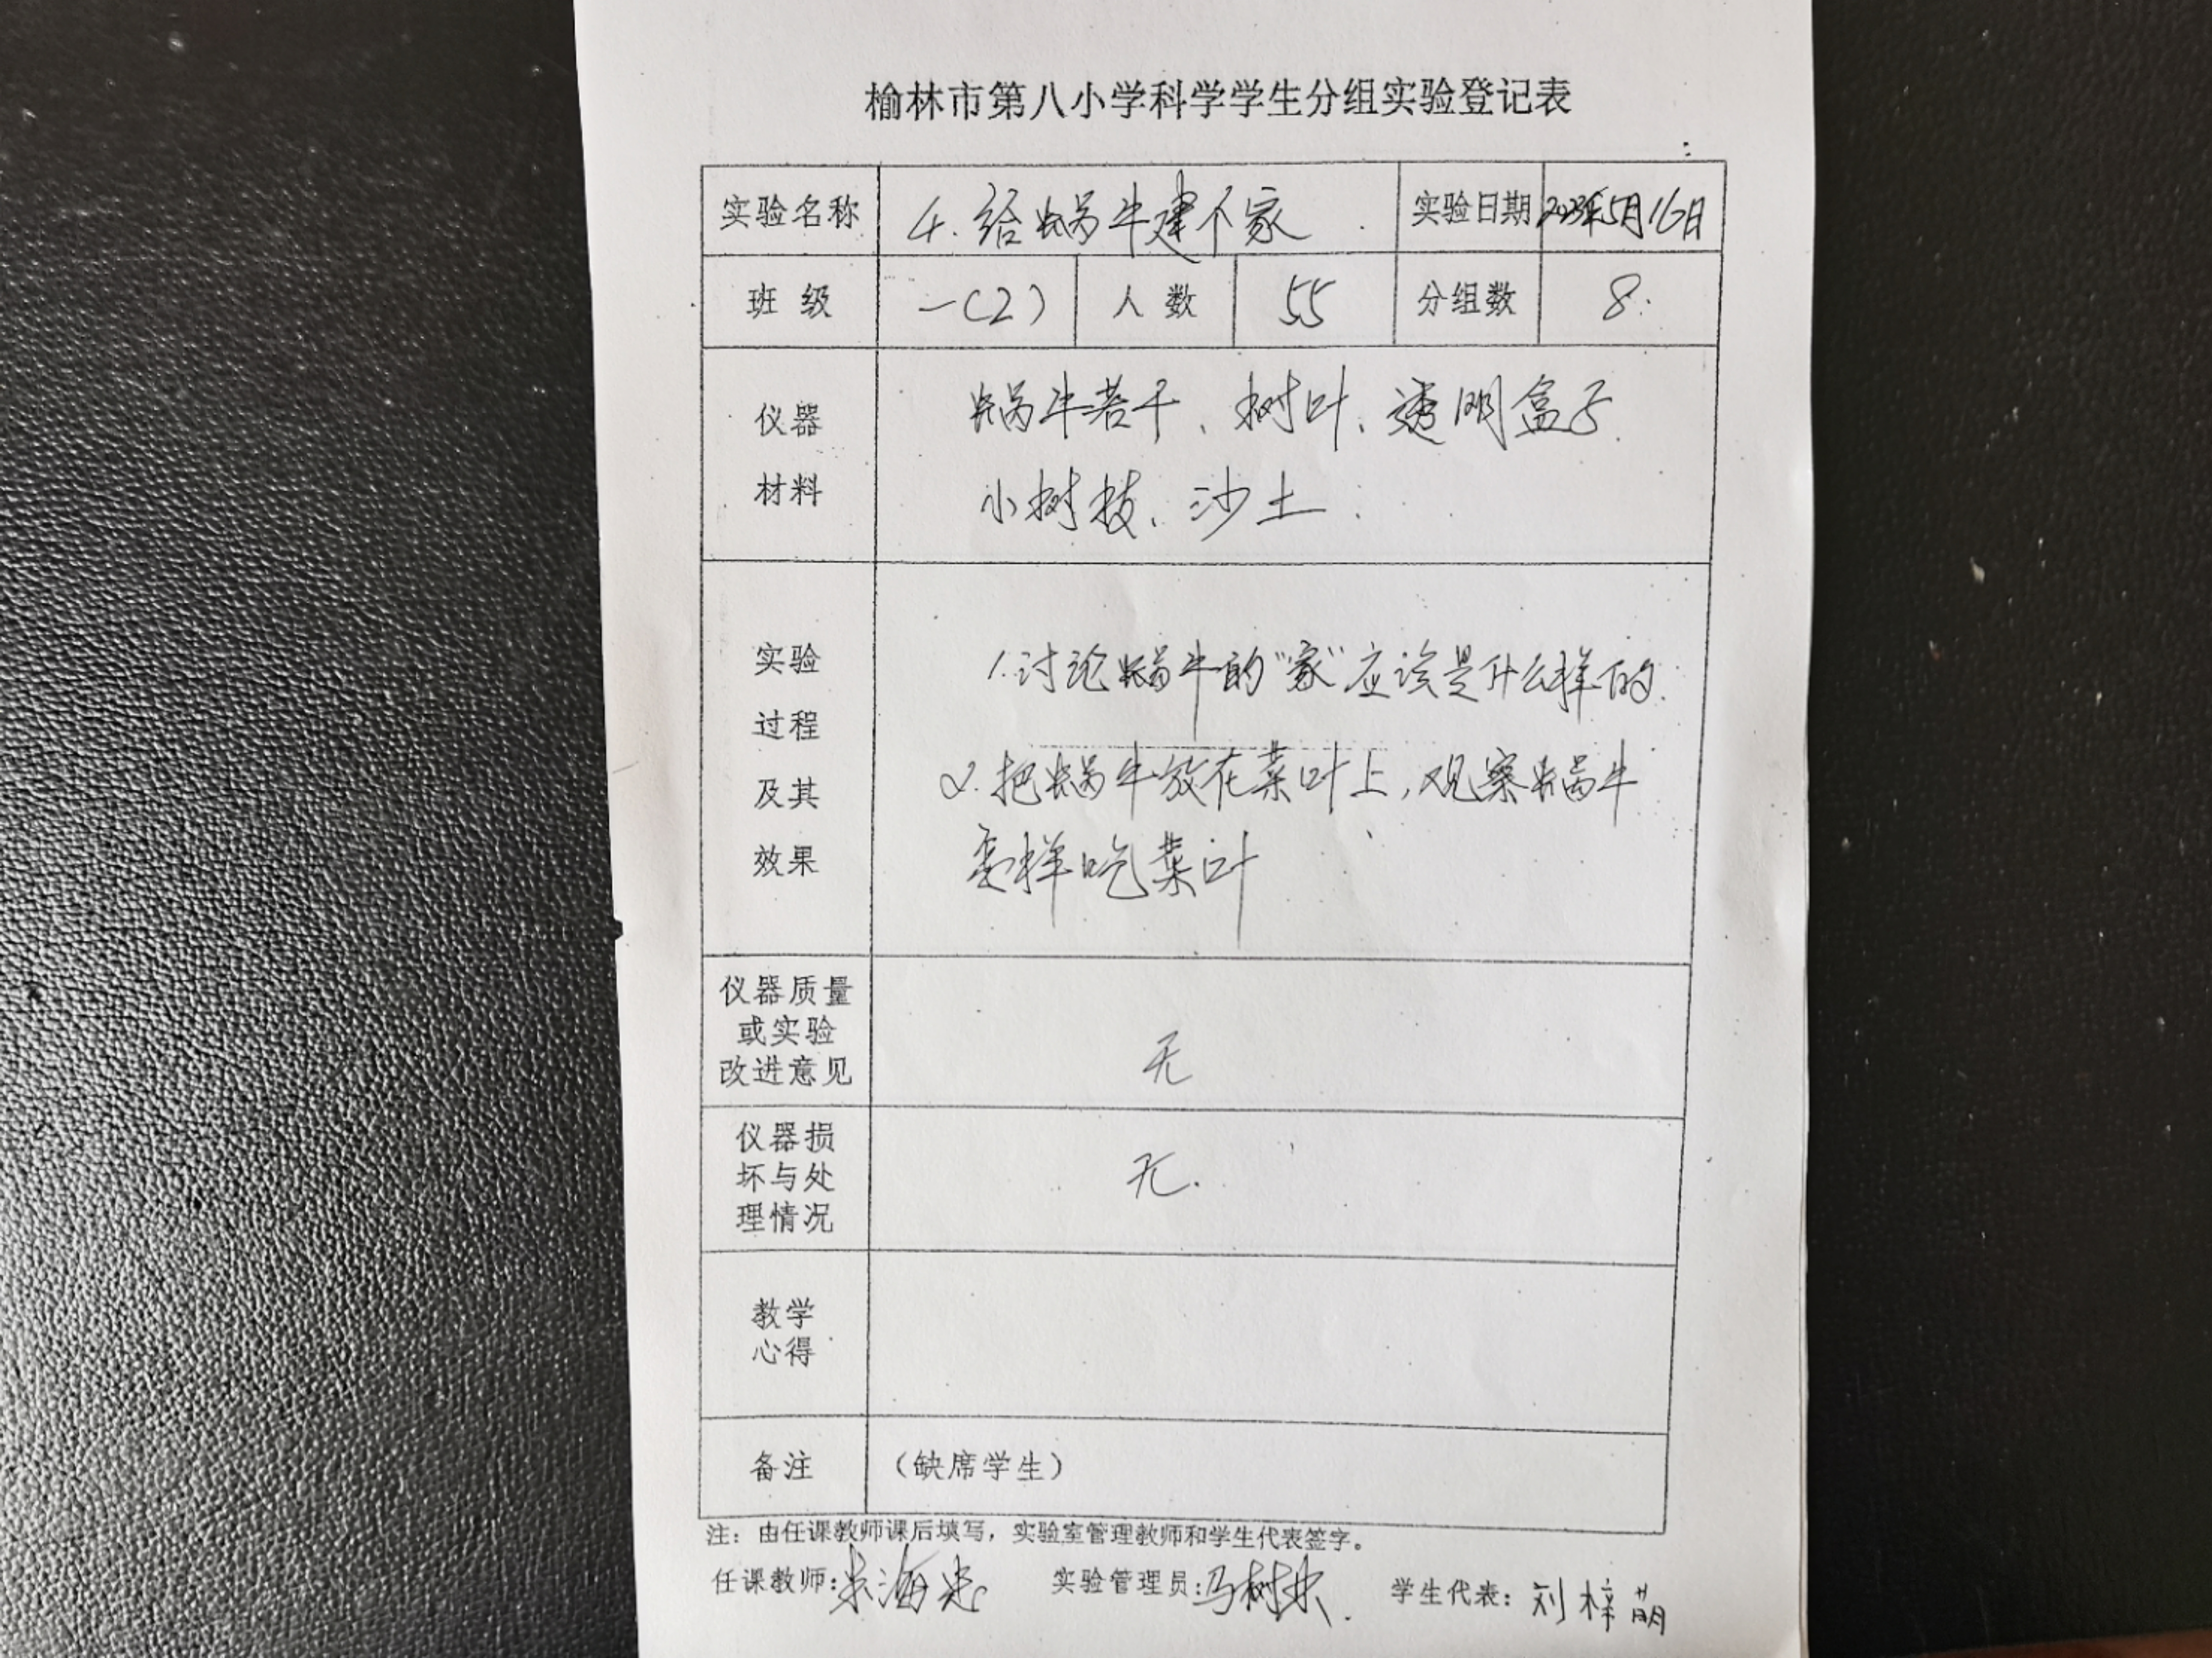 榆林市第八小学科学学生分组实验登记表
实验名称 4.给蜗牛建个家 实验日期 2023年5月16日
班 级 一(2) 人 数 55 分组数 8
仪器
材料
蜗牛若干、树叶、透明盒子
小树枝、沙土
实验
过程
及其
效果
1.讨论蜗牛的“家”应该是什么样的
2.把蜗牛放在菜叶上,观察蜗牛
怎样吃菜叶
仪器质量
或实验
改进意见
无
仪器损
坏与处
理情况
无.
教学
心得
备注 (缺席学生)
注:由任课教师课后填写,实验室管理教师和学生代表签字。
任课教师: 实验管理员:马树 学生代表:刘梓萌